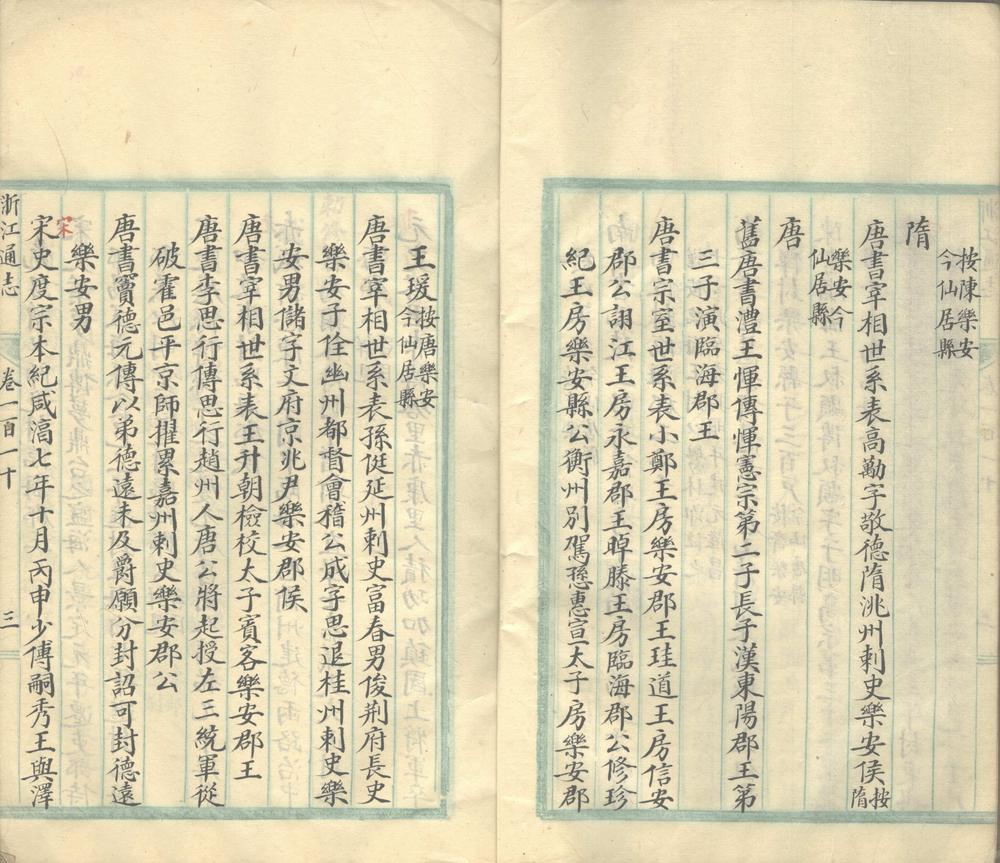 按陳樂安
今仙居縣
隋
唐書宰相世系表高勱字敬德隋洮州刺史樂安侯按隋
樂安今
仙居縣
唐
舊唐書澧王惲傳惲憲宗第二子長子漢東陽郡王第
三子演臨海郡王
唐書宗室世系表小鄭王房樂安郡王珪道王房信安
郡公詡江王房永嘉郡王晫滕王房臨海郡公修珍
紀王房樂安縣公衡州別駕愻惠宣太子房樂安郡
王瑗按唐樂安今仙居縣
唐書宰相世系表孫侹延州刺史富春男俊荆府長史
樂安子佺幽州都督會稽公成字思退桂州刺史樂
安男儲字文府京兆尹樂安郡侯
唐書宰相世系表王升朝檢校太子賓客樂安郡王
唐書李思行傳思行趙州人唐公將起授左三統軍從
破霍邑平京師擢累嘉州刺史樂安郡公
唐書竇德元傳以弟德遠未及爵願分封詔可封德遠
樂安男
宋
宋史度宗本紀咸淳七年十月丙申少傅嗣秀王與澤
浙江通志 卷一百一十 三